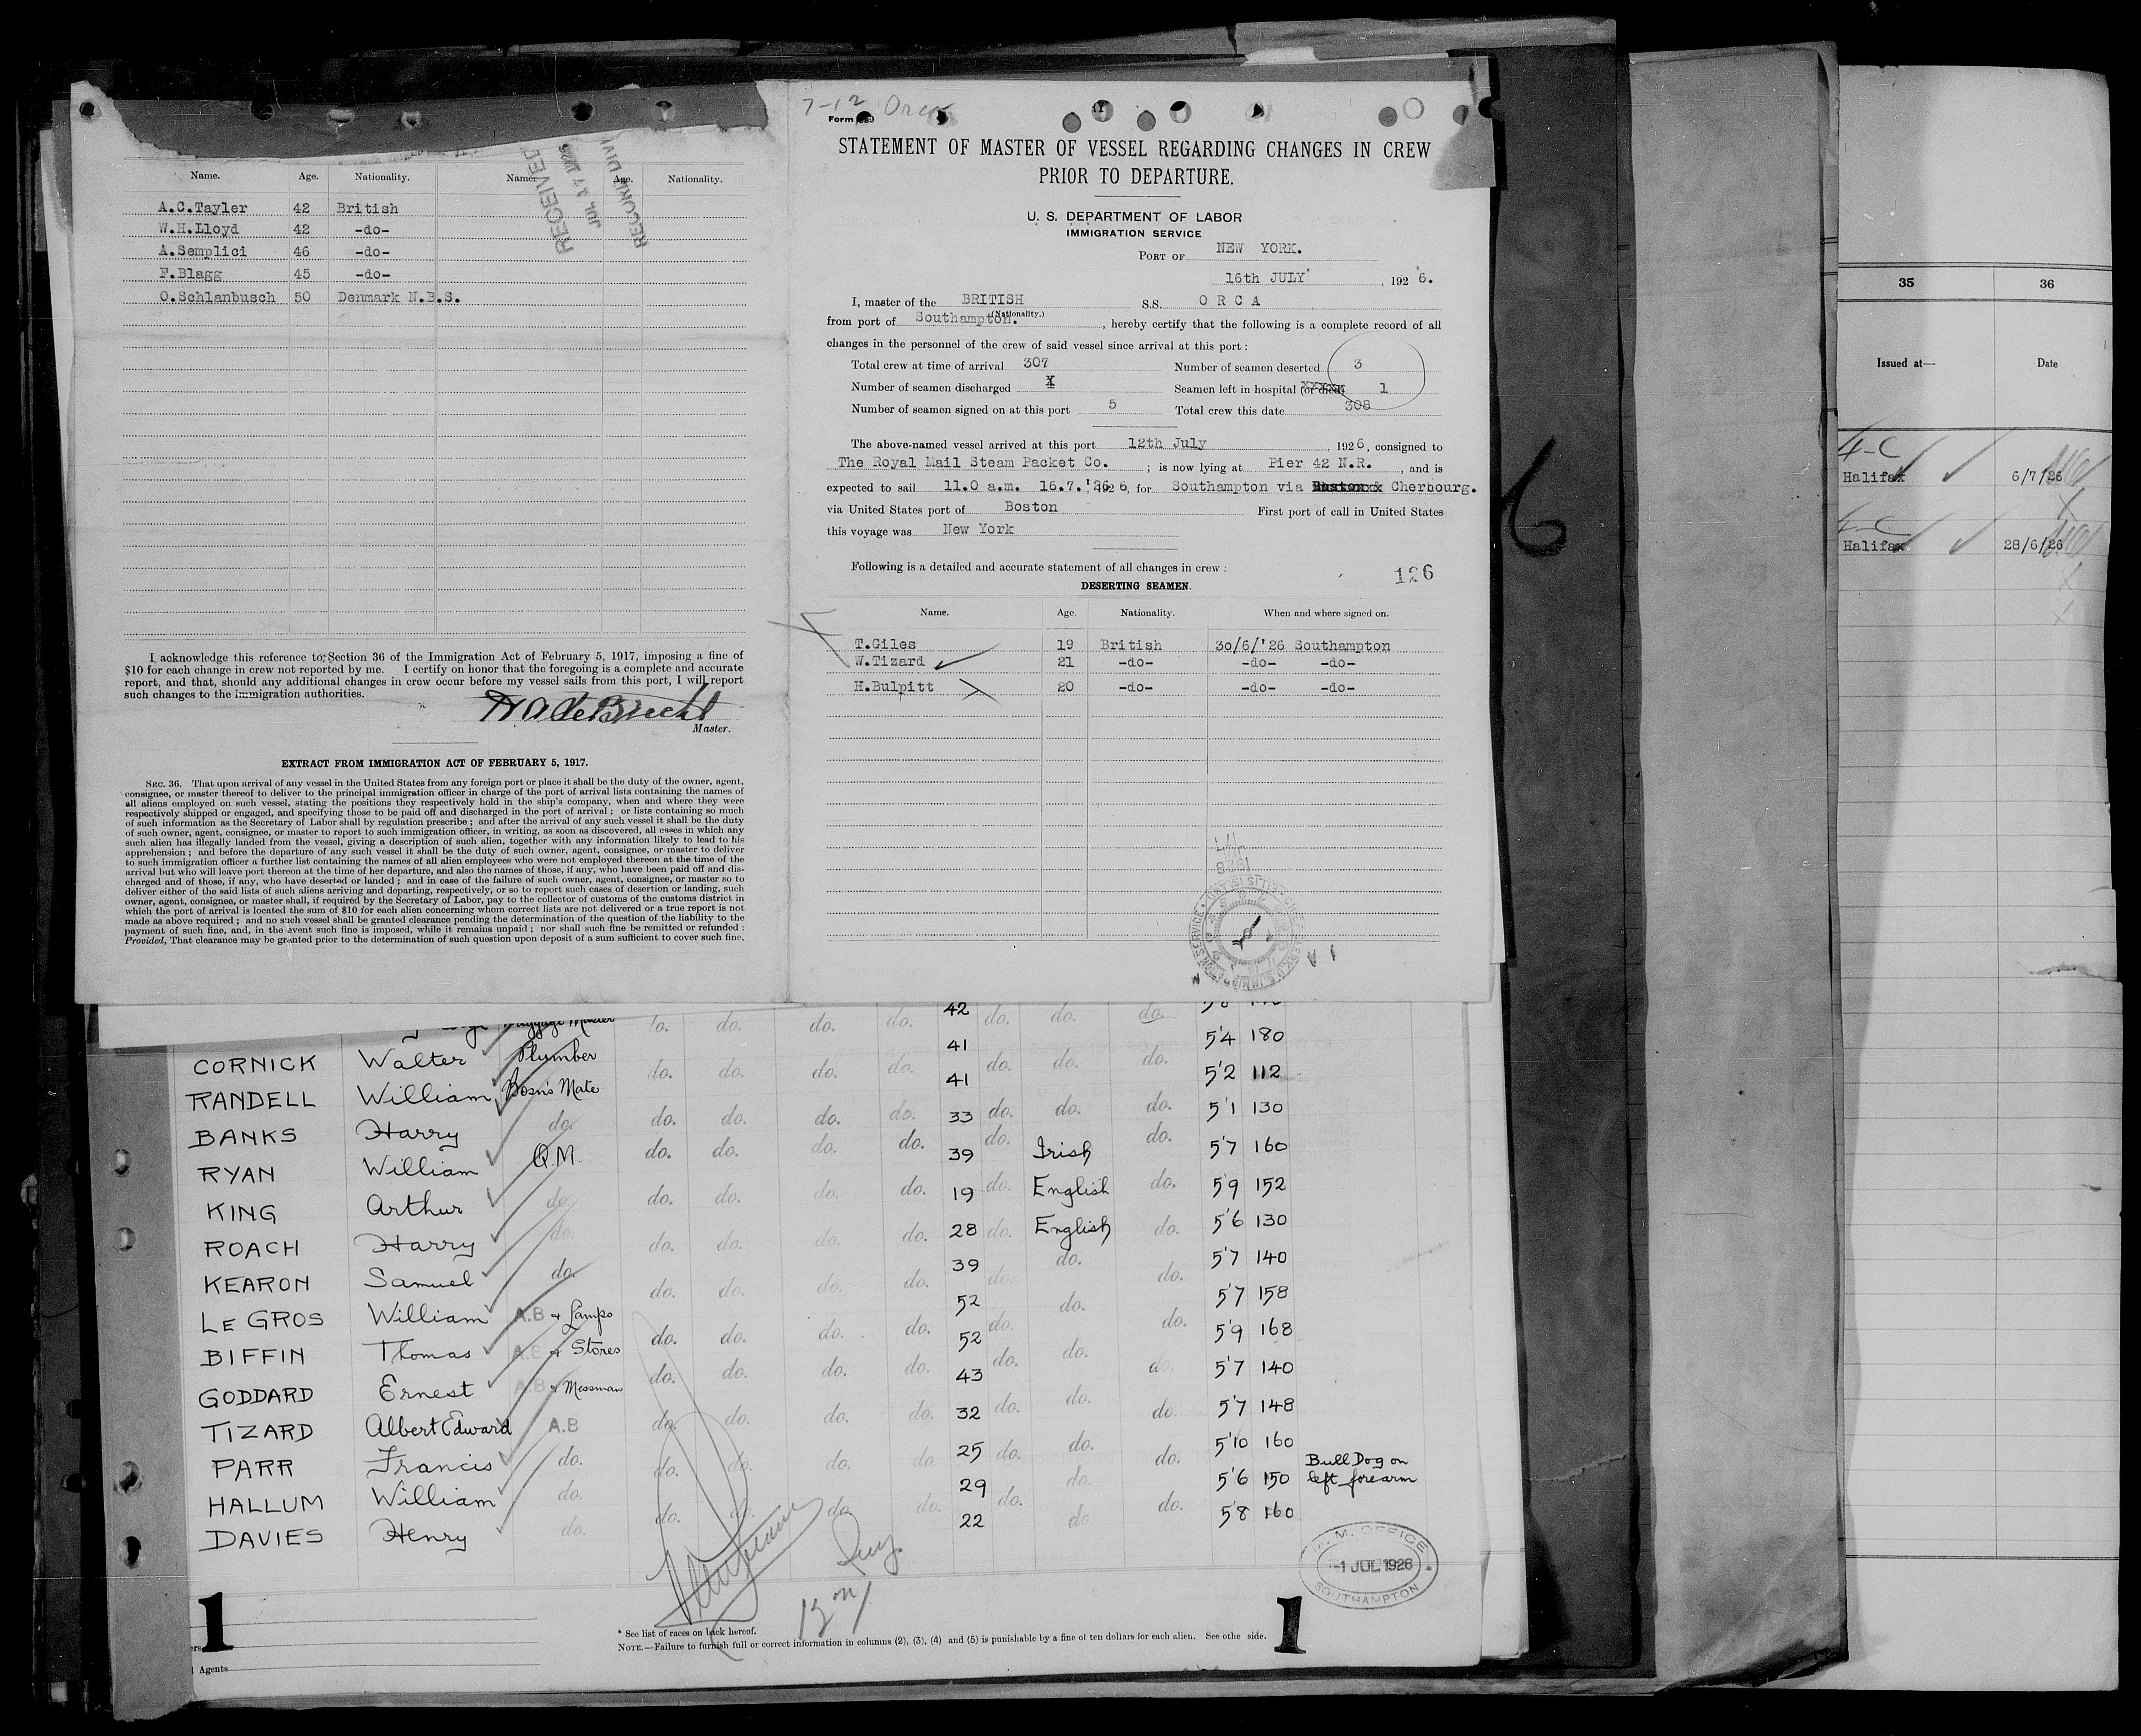 Name. Age. Nationality. Name. Age. Nationality.
A.C.Tayler 42 British
W.H.Lloyd 42 -do-
A.Semplici 46 -do-
F.Blagg 45 -do-
O.Schlanbusch 50 Denmark N.B.S.
RECEIVED
JUL 17 1926
RECORD DIVI
I acknowledge this reference to Section 36 of the Immigration Act of February 5, 1917, imposing a fine of
$10 for each change in crew not reported by me. I certify on honor that the foregoing is a complete and accurate
report, and that, should any additional changes in crew occur before my vessel sails from this port, I will report
such changes to the immigration authorities.
Master.
EXTRACT FROM IMMIGRATION ACT OF FEBRUARY 5, 1917.
SEC. 36. That upon arrival of any vessel in the United States from any foreign port or place it shall be the duty of the owner, agent,
consignee, or master thereof to deliver to the principal immigration officer in charge of the port of arrival lists containing the names of
all aliens employed on such vessel, stating the positions they respectively hold in the ship's company, when and where they were
respectively shipped or engaged, and specifying those to be paid off and discharged in the port of arrival; or lists containing so much
of such information as the Secretary of Labor shall by regulation prescribe; and after the arrival of any such vessel it shall be the duty
of such owner, agent, consignee, or master to report to such immigration officer, in writing, as soon as discovered, all cases in which any
such alien has illegally landed from the vessel, giving a description of such alien, together with any information likely to lead to his
apprehension; and before the departure of any such vessel it shall be the duty of such owner, agent, consignee, or master to deliver
to such immigration officer a further list containing the names of all alien employees who were not employed thereon at the time of the
arrival but who will leave port thereon at the time of her departure, and also the names of those, if any, who have been paid off and dis-
charged and of those, if any, who have deserted or landed; and in case of the failure of such owner, agent, consignee, or master so to
deliver either of the said lists of such aliens arriving and departing, respectively, or so to report such cases of desertion or landing, such
owner, agent, consignee, or master shall, if required by the Secretary of Labor, pay to the collector of customs of the customs district in
which the port of arrival is located the sum of $10 for each alien concerning whom correct lists are not delivered or a true report is not
made as above required; and no such vessel shall be granted clearance pending the determination of the question of the liability to the
payment of such fine, and, in the event such fine is imposed, while it remains unpaid; nor shall such fine be remitted or refunded:
Provided, That clearance may be granted prior to the determination of such question upon deposit of a sum sufficient to cover such fine.
7-12 Orca
Form 689
STATEMENT OF MASTER OF VESSEL REGARDING CHANGES IN CREW
PRIOR TO DEPARTURE.
U. S. DEPARTMENT OF LABOR
IMMIGRATION SERVICE
PORT OF NEW YORK.
16th JULY' , 192 6.
I, master of the BRITISH S.S. O R C A
(Nationality.)
from port of Southampton. , hereby certify that the following is a complete record of all
changes in the personnel of the crew of said vessel since arrival at this port:
Total crew at time of arrival 307 Number of seamen deserted 3
Number of seamen discharged X Seamen left in hospital (or died) 1
Number of seamen signed on at this port 5 Total crew this date 308
The above-named vessel arrived at this port 12th July , 1926, consigned to
The Royal Mail Steam Packet Co. ; is now lying at Pier 42 N.R. , and is
expected to sail 11.0 a.m. 16.7.'26 , 192 6, for Southampton via Boston & Cherbourg.
via United States port of Boston First port of call in United States
this voyage was New York
Following is a detailed and accurate statement of all changes in crew:
126
DESERTING SEAMEN.
Name. Age. Nationality. When and where signed on.
T.Giles 19 British 30/6/'26 Southampton
W.Tizard 21 -do- -do- -do-
H.Bulpitt 20 -do- -do- -do-
6
35 36
Issued at— Date
4-C
Halifax 6/7/26
4-C
Halifax 28/6/26
Baggage Master do. do. do. do. 42 do. do. do.
CORNICK Walter Plumber do. do. do. do. 41 do. do. do. 5'4 180
RANDELL William Bosn's Mate do. do. do. do. 41 do. do. do. 5'2 112
BANKS Harry do. do. do. do. do. 33 do. do. do. 5'1 130
RYAN William Q.M. do. do. do. do. 39 do. Irish do. 5'7 160
KING Arthur do. do. do. do. do. 19 do. English do. 5'9 152
ROACH Harry do. do. do. do. do. 28 do. English do. 5'6 130
KEARON Samuel do. do. do. do. do. 39 do. do. do. 5'7 140
LE GROS William A.B & Lamps do. do. do. do. 52 do. do. do. 5'7 158
BIFFIN Thomas A.B & Stores do. do. do. do. 52 do. do. do. 5'9 168
GODDARD Ernest A.B & Messman do. do. do. do. 43 do. do. do. 5'7 140
TIZARD Albert Edward A.B do. do. do. do. 32 do. do. do. 5'7 148
PARR Francis do. do. do. do. do. 25 do. do. do. 5'10 160
HALLUM William do. do. do. do. do. 29 do. do. do. 5'6 150 Bull Dog on left forearm
DAVIES Henry do. do. do. do. do. 22 do. do. do. 5'8 160
M. M. OFFICE
-1 JUL 1926
SOUTHAMPTON
1
1
* See list of races on back hereof.
NOTE.—Failure to furnish full or correct information in columns (2), (3), (4) and (5) is punishable by a fine of ten dollars for each alien. See othe side.
Agents